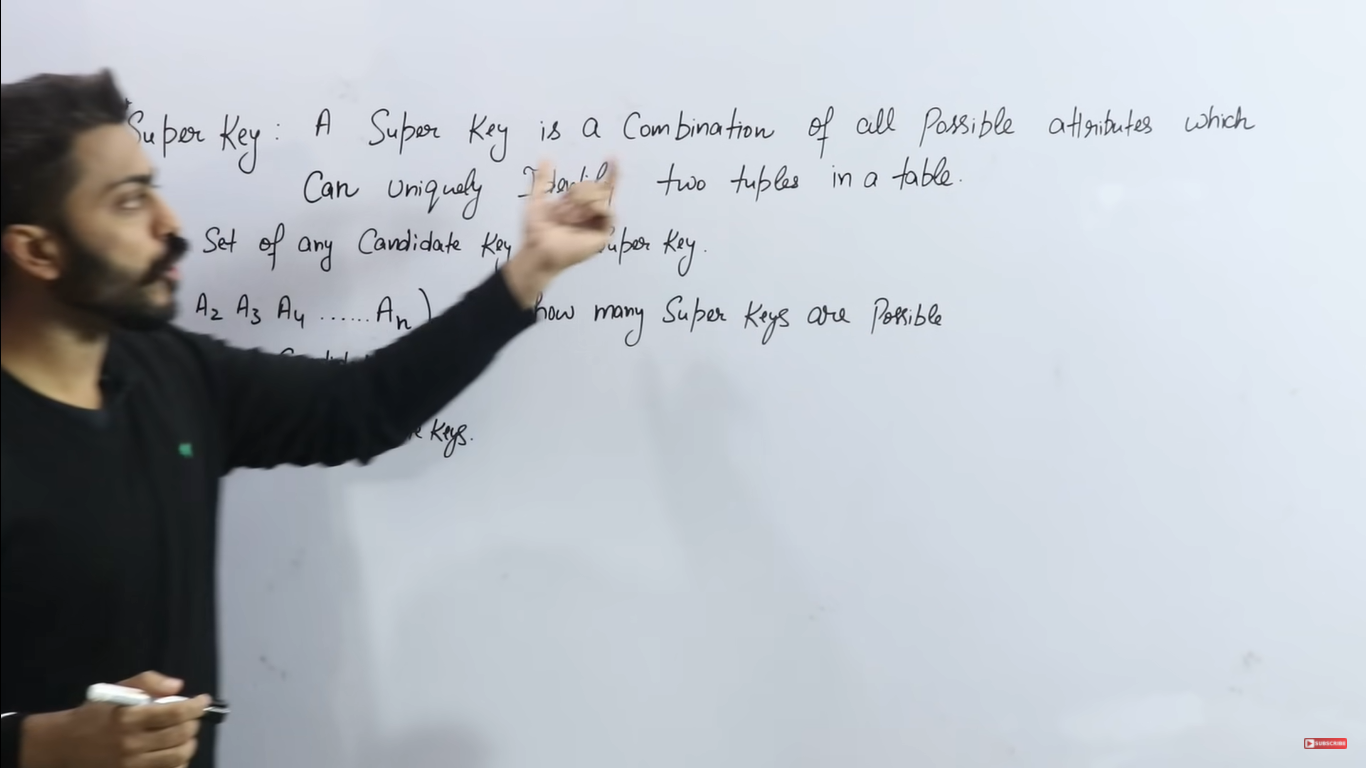 Super Key: A Super Key is a Combination of all Possible attributes which
Can uniquely two tuples in a table.
Set of any Candidate Key Super Key.
A2 A3 A4 ...... An) how many Super Keys are Possible
Keys.
SUBSCRIBE